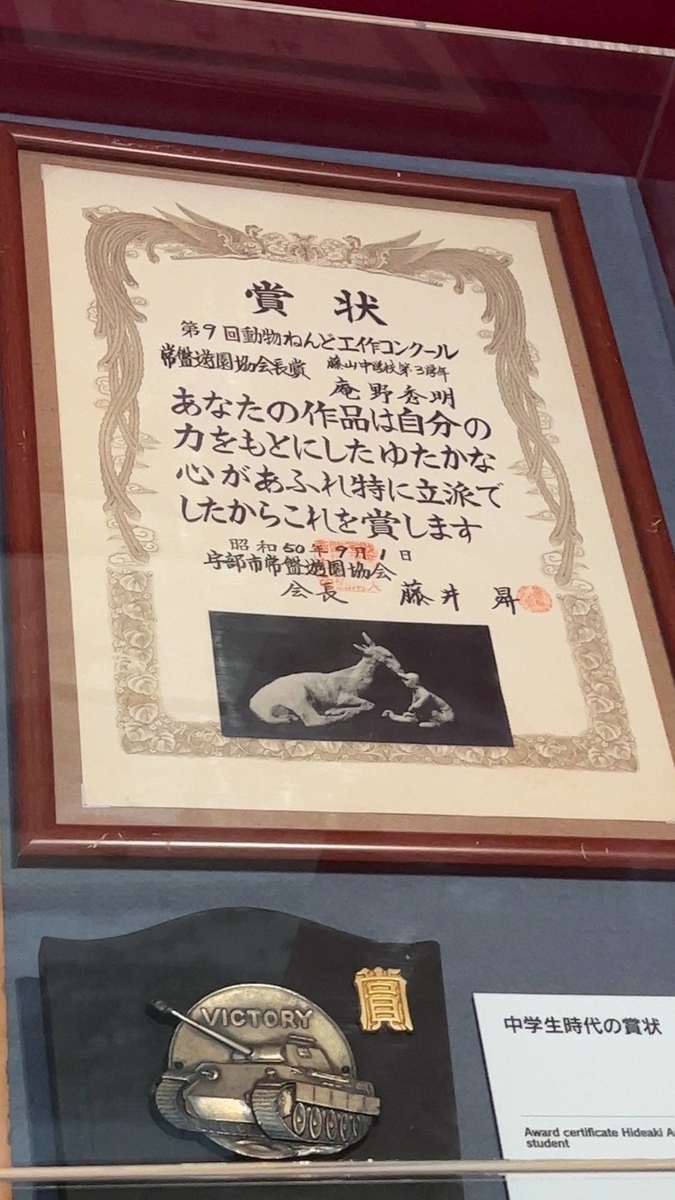 賞状
第9回動物ねんど工作コンクール
常盤遊園協会長賞 藤山中学校第3学年
庵野秀明
あなたの作品は自分の
力をもとにしたゆたかな
心があふれ特に立派で
したからこれを賞します
昭和50年9月1日
宇部市常盤遊園協会
会長 藤井 昇
VICTORY
賞
中学生時代の賞状
Award certificate Hideaki
student